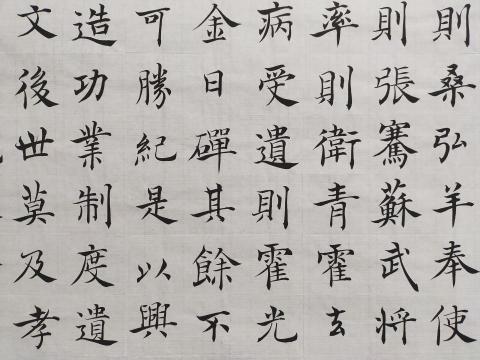 則桑弘羊奉使
則張騫蘇武將
率則衛青霍去
病受遺則霍光
金日磾其餘不
可勝紀是以興
造功業制度遺
文後世莫及孝